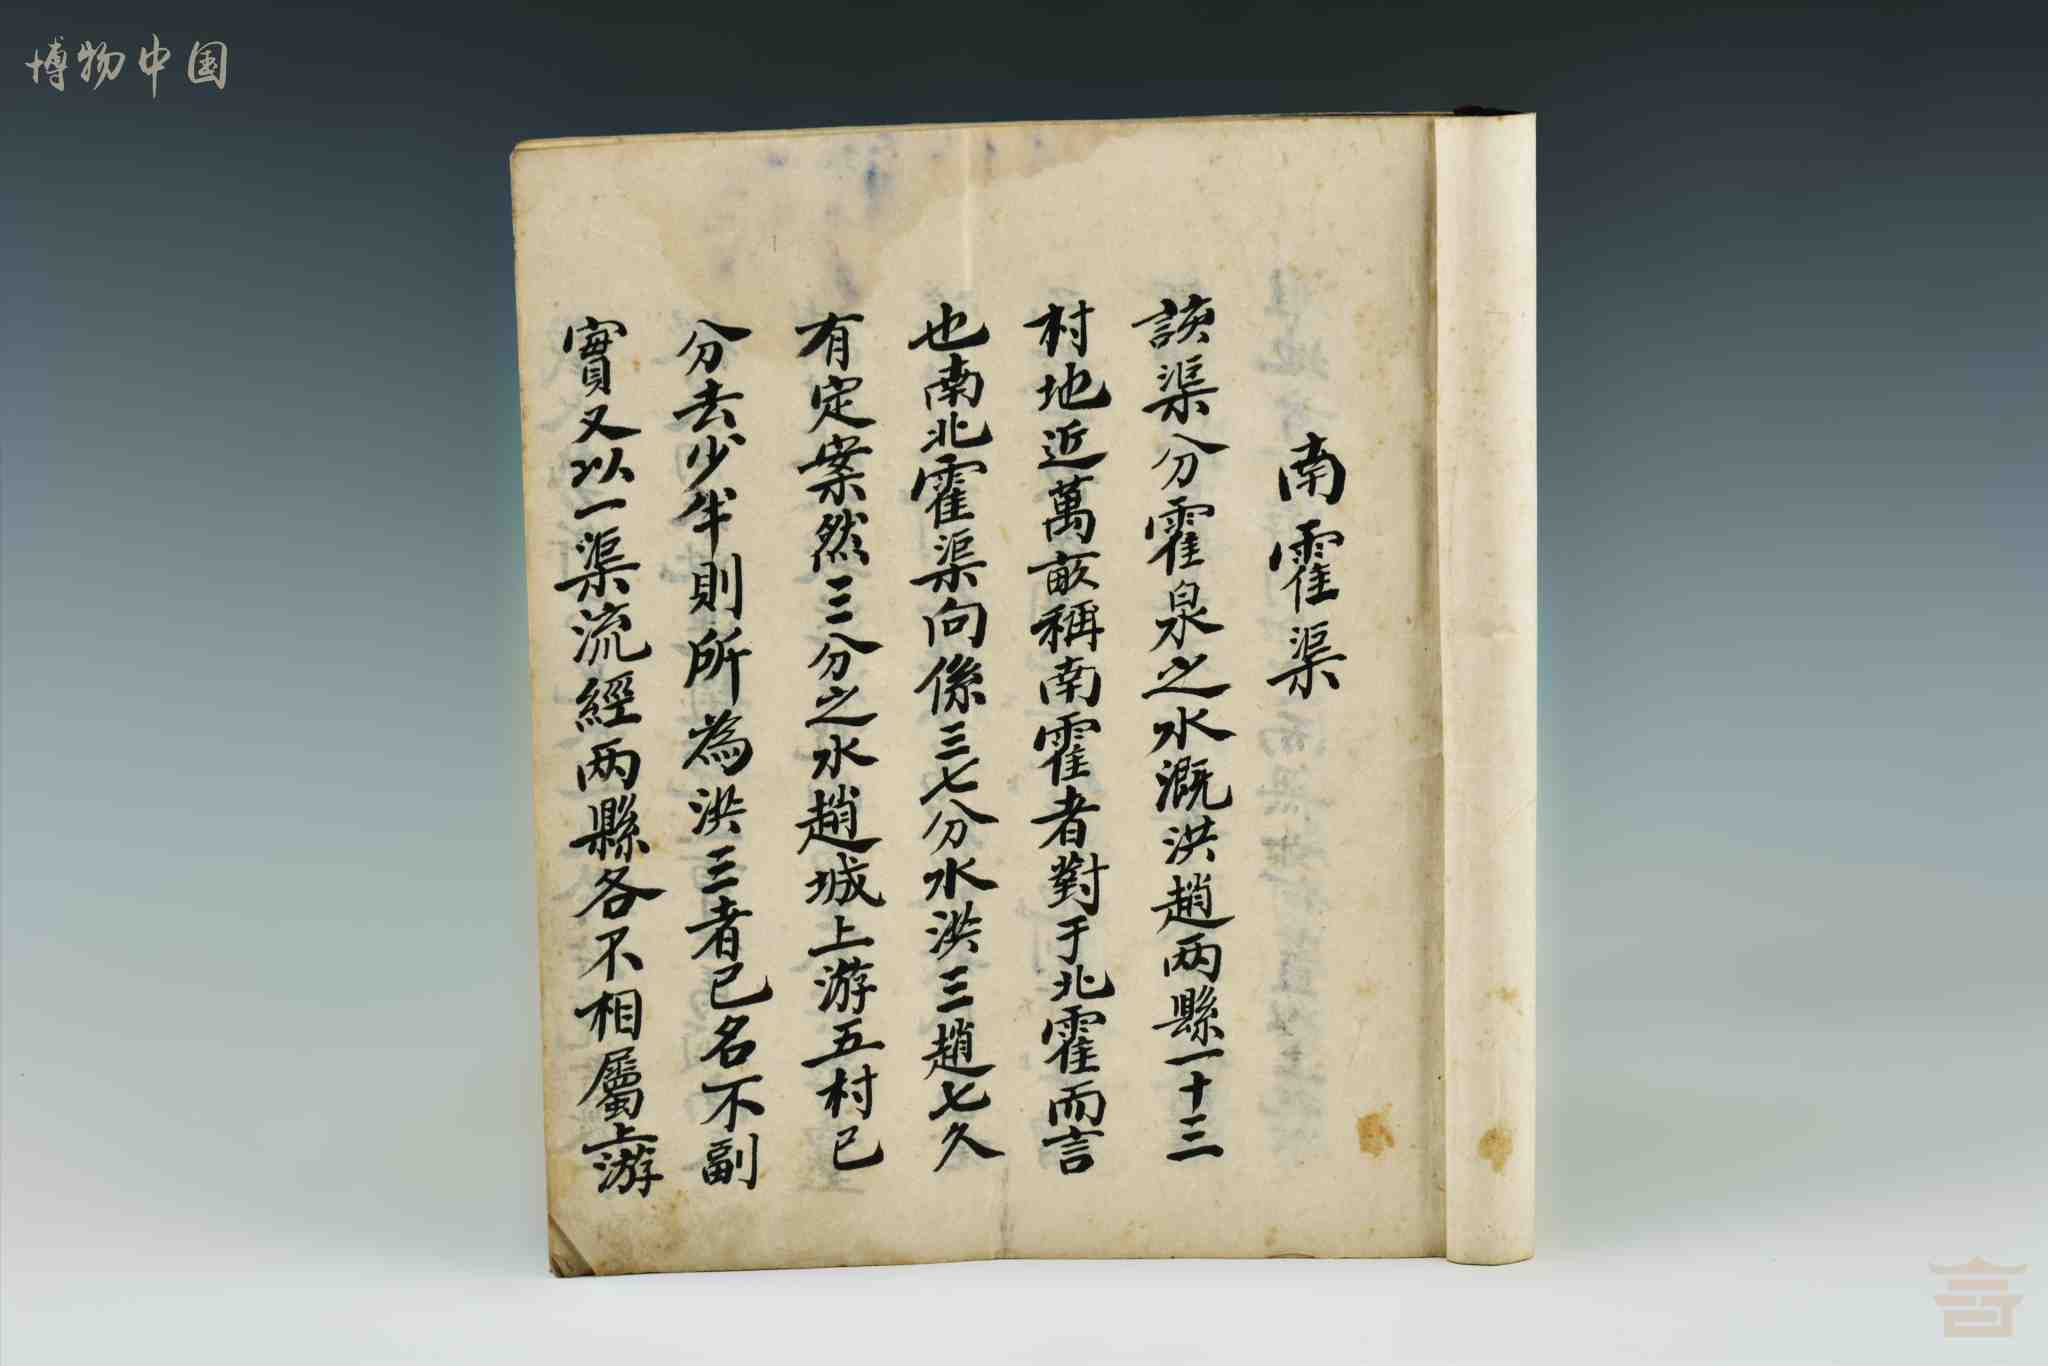 博物中国
南霍渠
該渠分霍泉之水溉洪趙两縣一十三
村地近萬畝稱南霍者對于北霍而言
也南北霍渠向係三七分水洪三趙七久
有定案然三分之水趙城上游五村已
分去少半則所為洪三者已名不副
實又以一渠流經两縣各不相屬上游